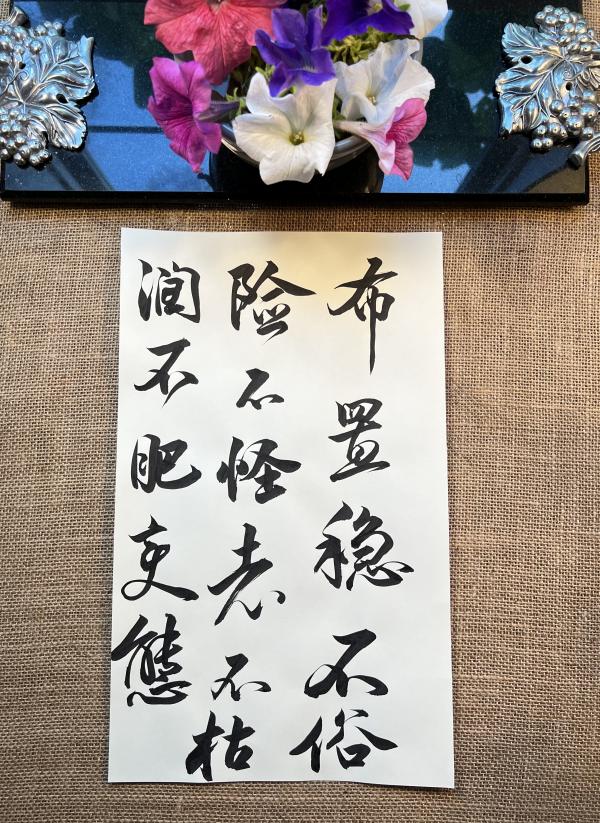 布置稳不俗
险不怪老不枯
润不肥变態